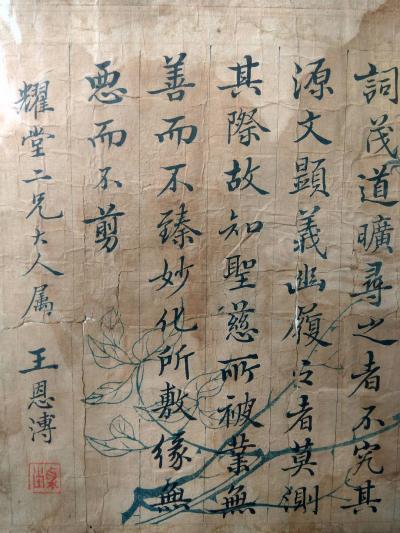 詞茂道曠尋之者不究其
源文顯義幽履之者莫測
其際故知聖慈所被業無
善而不臻妙化所敷緣無
悪而不剪
耀堂二兄大人属 王恩溥